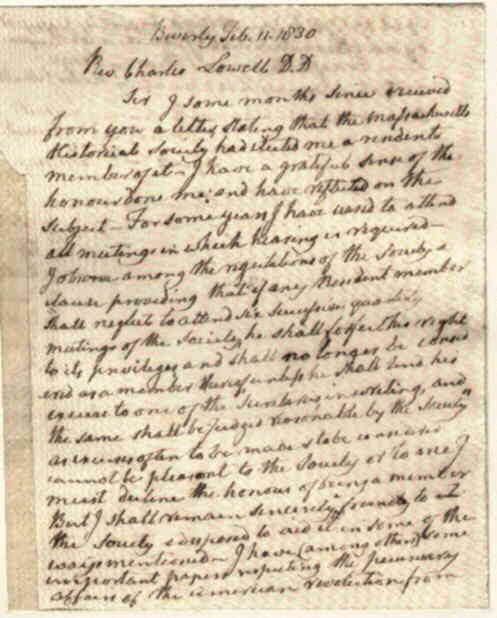 Beverly Feb. 11. 1830
Rev. Charles Lowell D.D
Sir I some months since received
from you a letter stating that the Massachusetts
Historical Society had elected me a resident
member of it – I have a grateful sense of the
honour done me; and have reflected on the
subject – For some years I have ceased to attend
all meetings in which hearing is required –
I observe among the regulations of the Society a
clause providing that "if any Resident member
shall neglect to attend six successive quarterly
meetings of the Society, he shall forfeit his right
to its privileges and shall no longer be consid
ered as a member thereof unless he shall send his
excuse to one of the Secretaries in writing, and
the same shall be judged reasonable by the Society"
as excuses often to be made & to be
cannot be pleasant to the Society or to me I
must decline the honour of being a member
But I shall remain sincerely friendly to
the Society & disposed to aid it in some of the
ways mentioned – I have (among others) some
important papers respecting the pecuniary
affairs of the American revolution from